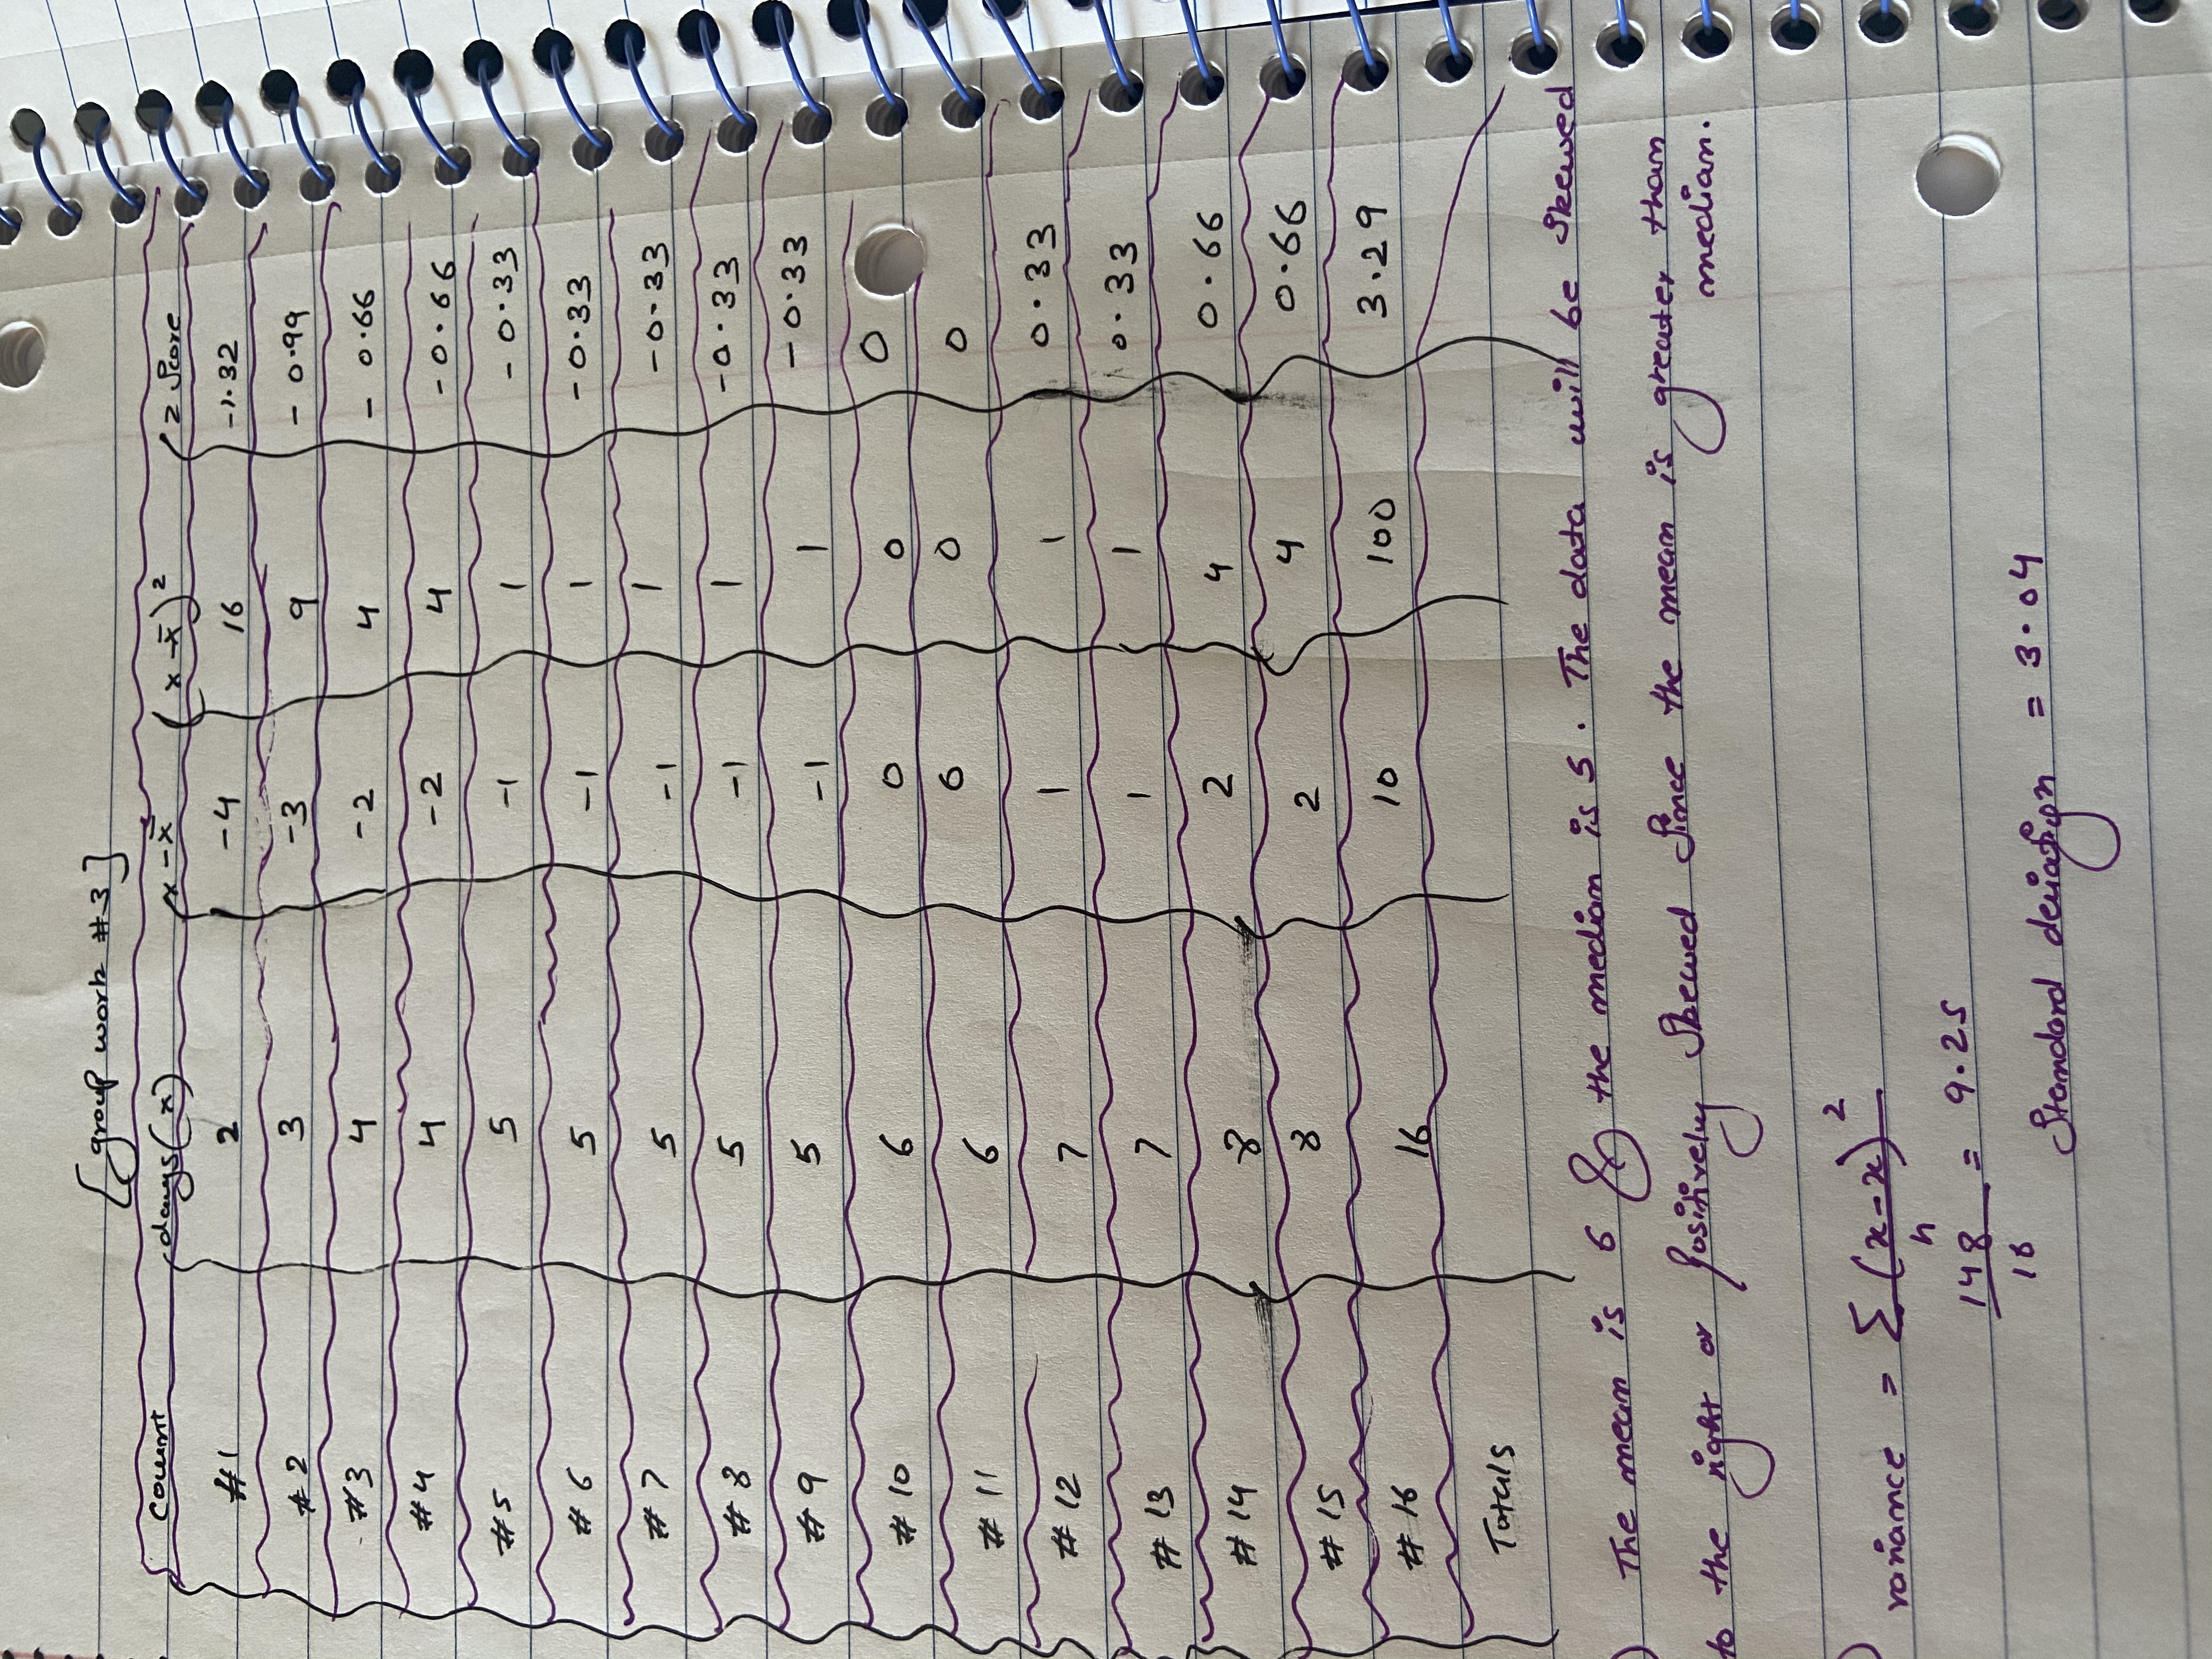 [group work #3]
count days (x) x - x̄ (x - x̄)² z score
#1 2 -4 16 -1.32
#2 3 -3 9 - 0.99
#3 4 -2 4 - 0.66
#4 4 -2 4 -0.66
#5 5 -1 1 - 0.33
#6 5 -1 1 -0.33
#7 5 -1 1 -0.33
#8 5 -1 1 -0.33
#9 5 -1 1 -0.33
#10 6 0 0 0
#11 6 0 0 0
#12 7 1 1 0.33
#13 7 1 1 0.33
#14 8 2 4 0.66
#15 8 2 4 0.66
#16 16 10 100 3.29
Totals
) The mean is 6 & the median is 5. The data will be skewed
to the right or positively skewed since the mean is greater than
median.
) variance = Σ (x-x)²
n
148 = 9.25
16
Standard deviation = 3.04